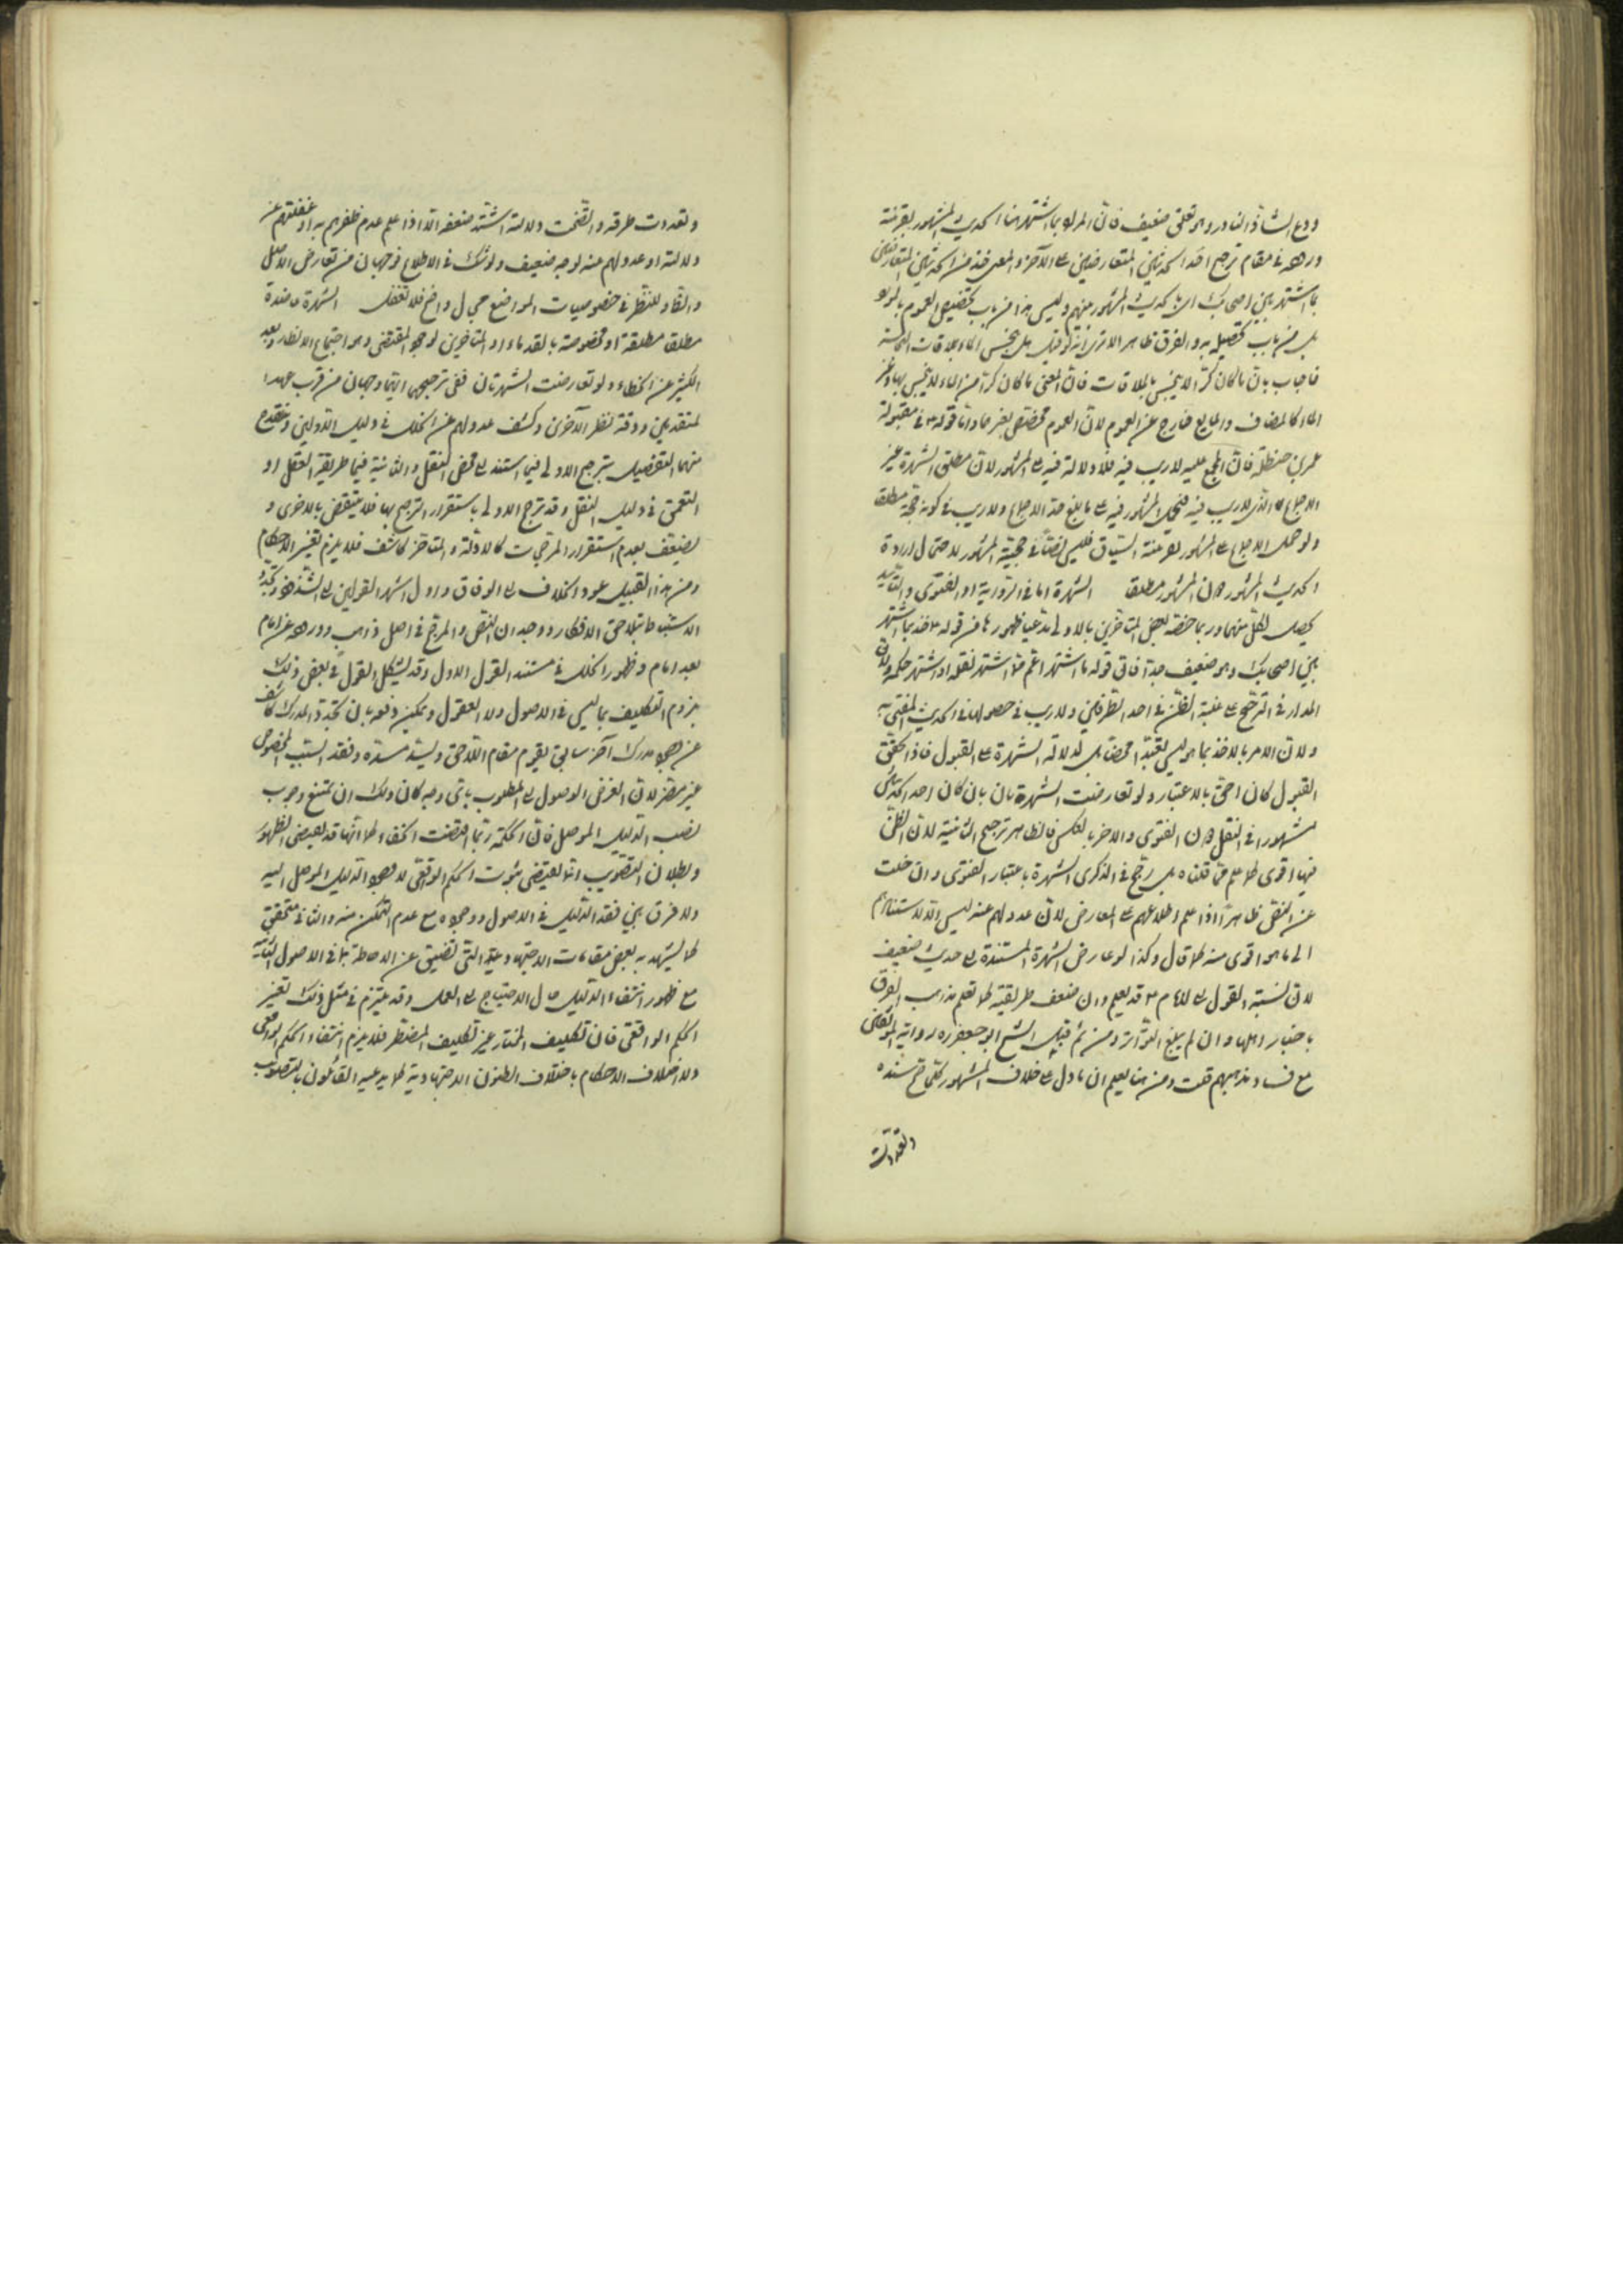 ودع الشاذ النادر وهو قلت ضعيف فان المراد بما اشتهر هنا الحديث المشهور بقرينة
وروده في مقام ترجيح احد الحديثين المتعارضين على الآخر والمعنى خذ من الحديثين المتعارضين
بما اشتهر بين اصحابك اي بالحديث المشهور بينهم وليس هذا من باب تخصيص العموم بالمورد
بل من باب تحصيله به والفرق ظاهر الا ترى انه لو قيل هل ينجس الماء بملاقات النجاسة
فاجاب بان ما كان كرا لا ينجس بالملاقات فان المعنى ما كان كرا من الماء لا ينجس بها وغير
الماء كالمضاف والمايع خارج عن العموم لان العموم مختص بغيرهما واما قوله في مقبولة
عمر بن حنظلة فان المجمع عليه لا ريب فيه فلا دلالة فيه على المشهور لان مطلق الشهرة غير
الاجماع الذي لا ريب فيه فيحمل المشهور فيه على ما بلغ حد الاجماع ولا ريب في كونه حجة مطلقا
ولو حمل الاجماع على المشهور بقرينة السياق فليس نصا في حجية المشهور لاحتمال ارادة
الحديث المشهور لا المشهور مطلقا الشهرة اما في الرواية او الفتوى والتأييد
يحصل لكل منهما وربما خصه بعض المتأخرين بالاولى مدعيا ظهورها من قوله خذ بما اشتهر
بين اصحابك وهو ضعيف جدا فان قوله ما اشتهر اعم مما اشتهر نقله او اشتهر حكمه ولان
المدار في الترجيح على غلبة الظن في احد الطرفين ولا ريب في حصولها في الحديث المفتى به
ولان الامر بالاخذ بما هو ليس تعبدا محضا بل لدلالة الشهرة على القبول فاذا تحقق
القبول كان احق بالاعتبار ولو تعارضت الشهرتان بان كان احد الحديثين
مشهورا في النقل دون الفتوى والاخر بالعكس فالظاهر ترجيح الثانية لان الظن
فيها اقوى كما علم مما قلناه بل رجح في الذكرى الشهرة باعتبار الفتوى وان خلت
عن النقل ظاهرا اذا علم اطلاعهم على المعارض لان عدولهم عنه ليس الا لاستنادهم
الى ما هو اقوى منه كما قال وكذا لو عارض الشهرة المستندة الى حديث ضعيف
لان نسبة القول الى الامام قد يعلم وان ضعف طريقه كما تعلم مذاهب الفرق
باخبار اهلها وان لم يبلغ التواتر ومن ثم قبل الشيخ ابو جعفر ره رواية الموثقين
مع فساد مذهبهم قلت ومن هنا يعلم ان ما دل على خلاف المشهور كلما صح سنده
وتعددت
وتعددت طرقه واتضحت دلالته اشتد ضعفه الا اذا علم عدم ظفرهم به او غفلتهم عن
دلالته او عدولهم عنه لوجه ضعيف ولو شك في الاطلاع فوجهان من تعارض الاصل
والظاهر وللنظر في خصوصيات المواضع مجال واضح فلا تغفل الشهرة عاضدة
مطلقا مطلقة او مخصوصة بالقدماء او المتأخرين لوجود المقتضي وهو اجتماع الانظار وبعد
الكثير عن الخطاء ولو تعارضت الشهرتان ففي ترجيح ايتهما وجهان من قرب عهد
المتقدمين ودقة نظر الآخرين وكشف عدولهم عن الخلل في دليل الاولين وينقدح
منهما التفصيل بترجيح الاولى فيما استند الى محض النقل والثانية فيما طريقه العقل او
التعمق في دليل النقل وقد ترجح الاولى باستقرار الترجيح بها فلا ينتقض بالاخرى و
يضعف بعدم استقرار المرجحات كالادلة والمتأخر كاشف فلا يلزم تغير الاحكام
ومن هذا القبيل عود الخلاف الى الوفاق وأول اشهر القولين الى الشذوذ وتجدد
الاستنباط بتلاحق الافكار ووجدان النص والمرجح في اصل ذاهب ووروده عن امام
بعد امام وظهور الخلل في مستند القول الاول وقد يشكل القول في بعض ذلك
بلزوم التكليف بما ليس في الاصول ولا العقول ويمكن دفعه بان تجدد المدرك كاشف
عن وجود مدرك آخر سابق يقوم مقام اللاحق ويسد مسده وفقد السبب المخصوص
غير مضر لان الغرض الوصول الى المطلوب باي وجه كان وبان يمتنع وجوب
نصب الدليل الموصل فان الحكمة ربما اقتضت الخفاء كما انها قد تقتضي الظهور
وبطلان التصويب انما يقتضي ثبوت الحكم الواقعي لا وجود الدليل الموصل اليه
ولا فرق بين فقد الدليل في الاصول ووجوده مع عدم التمكن منه والثاني متحقق
كما يشهد به بعض مقامات الاجتهاد التي تضيق عن الاحاطة بما في الاصول الثابتة
مع ظهور انتفاء الدليل حال الاحتياج الى العمل وقد يلتزم في مثل ذلك تغير
الحكم الواقعي فان تكليف المختار غير تكليف المضطر فلا يلزم انتفاء الحكم الواقعي
ولا اختلاف الاحكام باختلاف الظنون الاجتهادية كما يدعيه القائلون بالتصويب